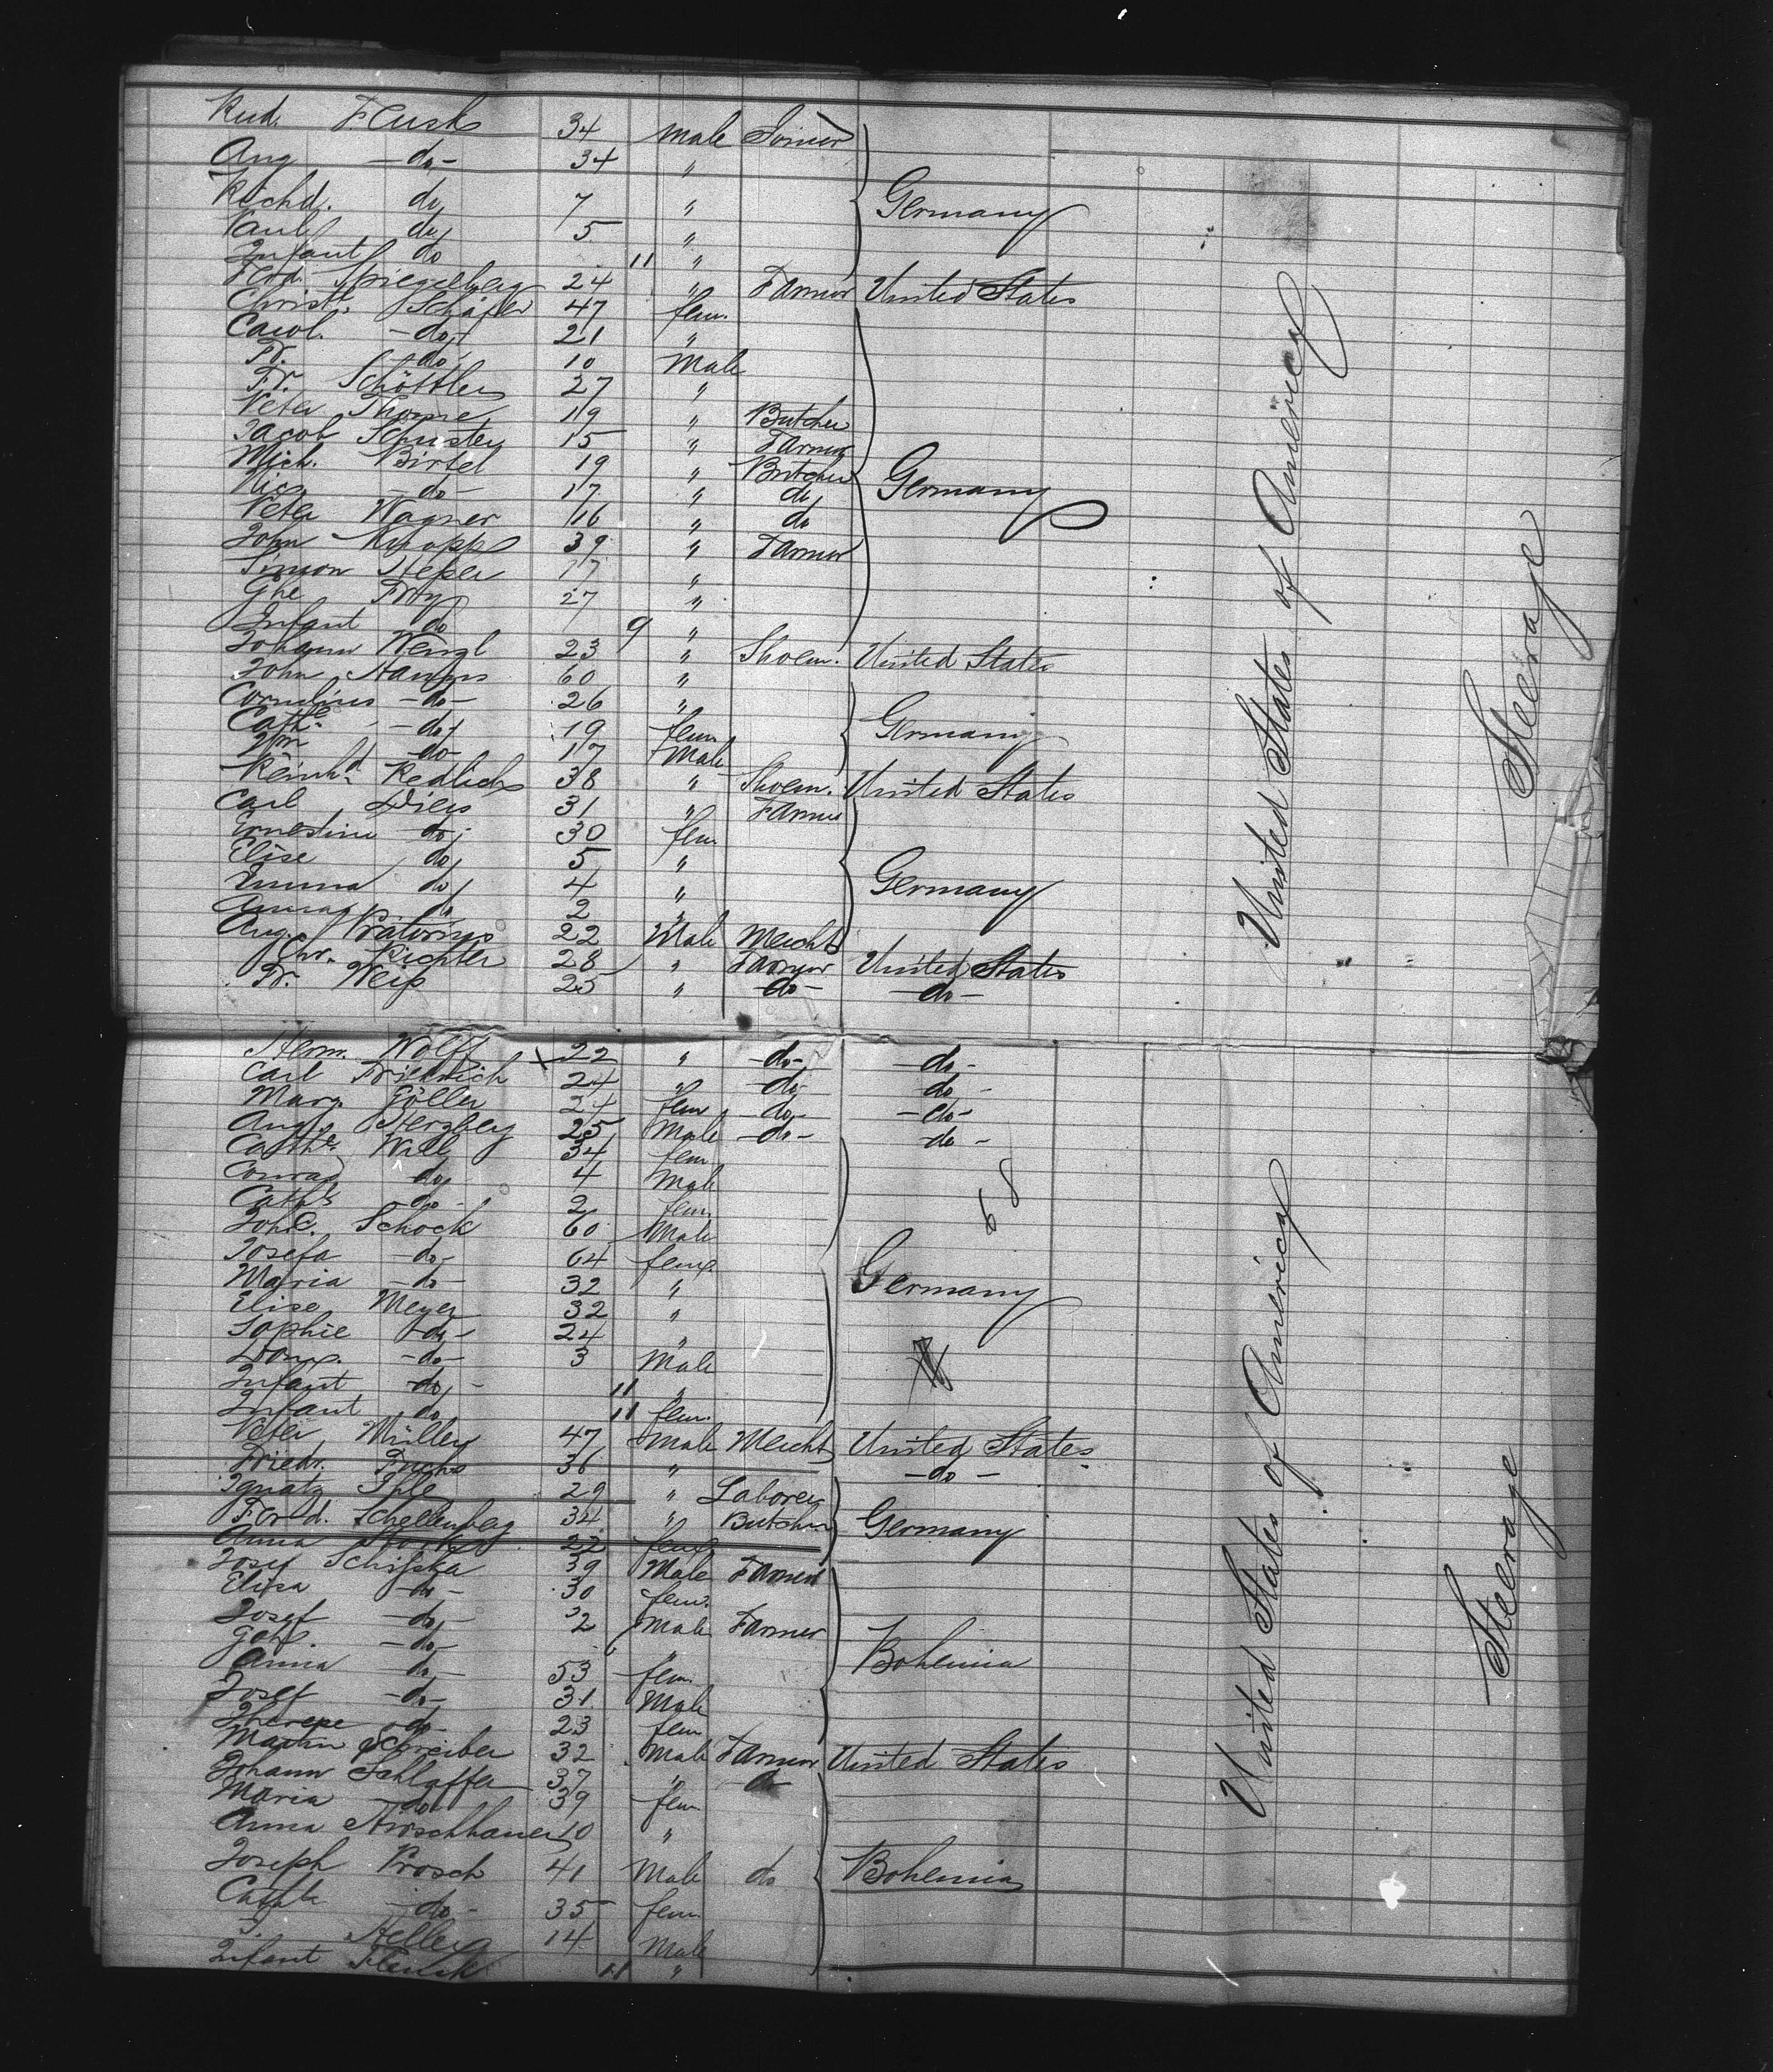 Rud. 34 male Joiner
Aug -do- 34 "
Richd. do 7 " Germany
Paul do 5 "
Infant do 11 "
Ferd. Spiegelberg 24 " Farmer United States
Christe. Schäfer 47 fem.
Carol. -do- 21 "
Fr. do 10 Male
Fr. Schöttler 27 "
Peter Thome 19 " Butcher
Jacob Schuster 15 " Farmer
Mich. Birtel 19 " Butcher Germany
Nics -do- 17 " do
Peter Wagner 16 " do
John Knopp 39 " Farmer
Simon 17 "
27 "
Infant do 9 "
Johann Wenzl 23 " Shoem. United States
John 60 "
Cornelius -do- 26 "
Cathe. -do- 19 fem. Germany
Wm do- 17 Male
Reinhd. Redlich 38 " Shoem. United States
Carl Diers 31 " Farmer
Ernestine do 30 fem
Elise do 5 "
Emma do 4 " Germany
Anna do 2 "
Aug. Prätorius 22 Male Mercht
Chr. Richter 28 " Farmer United States
Fr. Weiß 25 " -do- -do-
Herm. Wolff x 22 " -do- -do-
Carl Friedrich 24 " -do- do-
Marg. Göller 24 fem -do- -do-
Aug. Herzberg 25 Male -do- do-
Cathe. Will 34 fem
Conrad do 4 Male
Cath. do 2 fem. 68
Johe. Schock 60 Male
Josefa -do- 64 fem
Maria -do- 32 " Germany
Elise Meyer 32 "
Sophie -do- 24 "
-do- 3 Male
Infant do- 11 "
Infant do 11 fem.
Peter Müller 47 Male Mercht United States
Friedr. Fuchs 36 " -do-
Ignatz Ihle 29 " Laborer
Ferd. Schellenberg 34 " Butcher Germany
Anna 22 fem
Josef 39 Male Farmer
Elisa do- 30 fem.
Josef -do- 32 Male Farmer
-do- " Bohemia
Anna do- 53 fem.
Josef -do- 31 Male
Therese do- 23 fem
Martin Schreiber 32 Male Farmer United States
Johann Schlaffer 37 " do
Maria do- 39 fem.
Anna Hirschhauer 10 "
Joseph Prosch 41 Male do Bohemia
-do- 35 fem.
Heller 14 Male
Infant 11 "
United States of America
Steerage
United States of America
Steerage